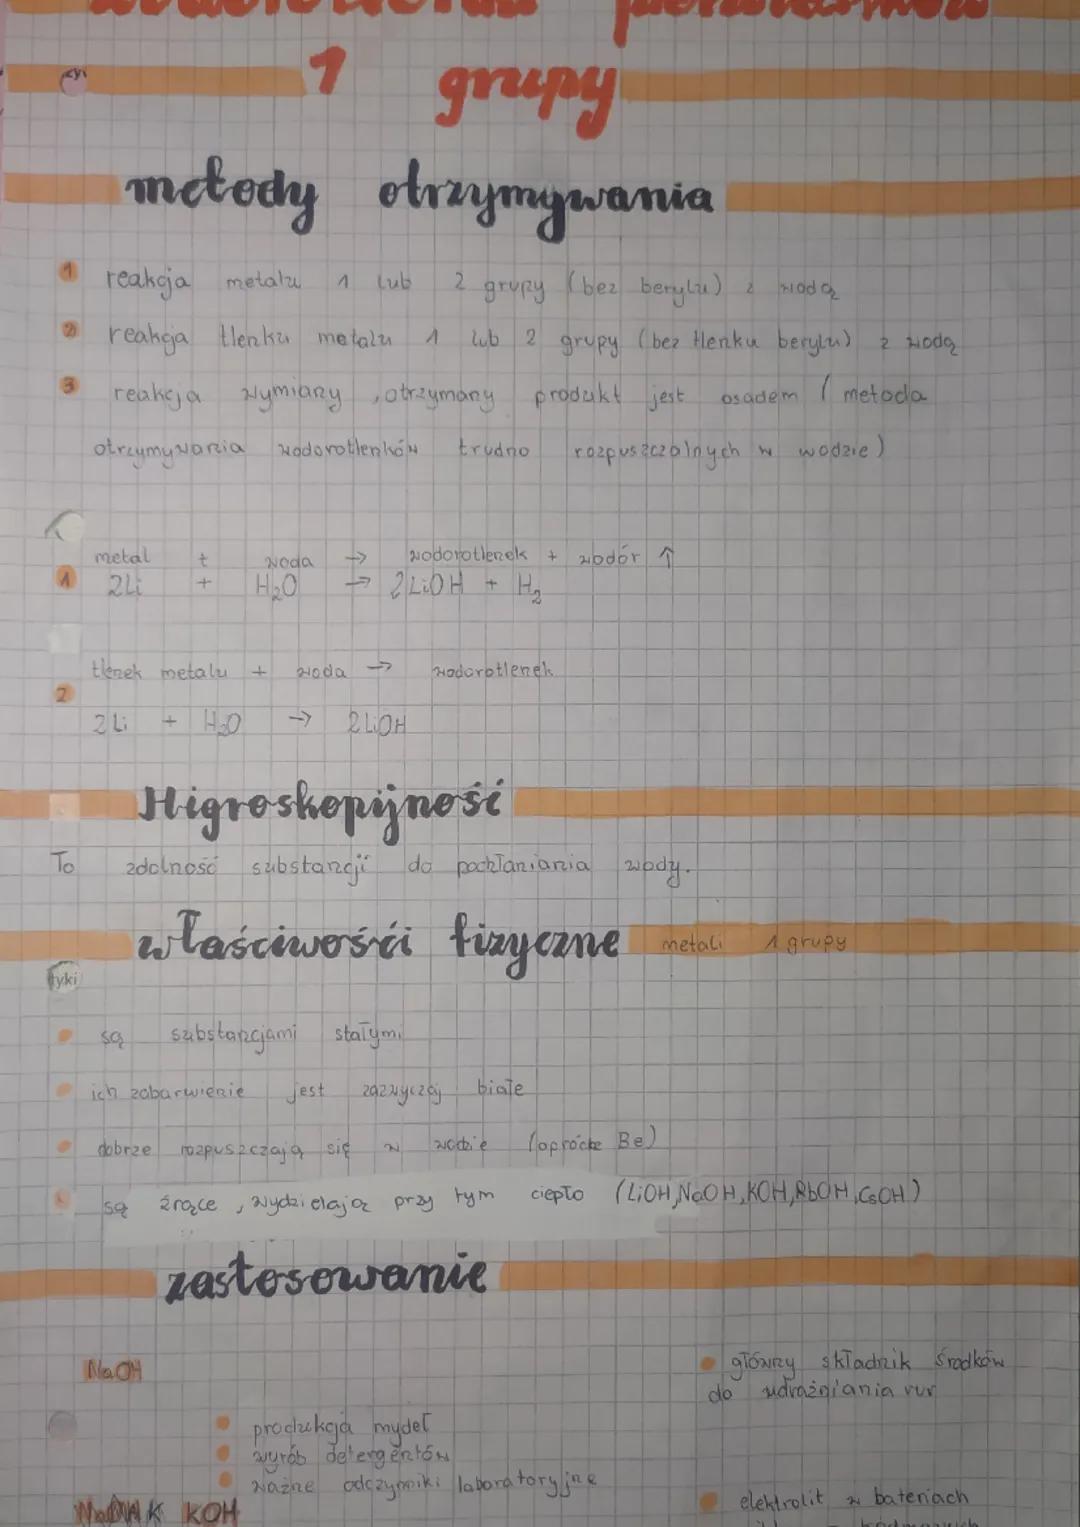 1 grupy
metody otrzymywania
1 reakcja metalu 1 lub 2 grupy (bez berylu) z wodą
2 reakcja tlenku metalu 1 lub 2 grupy (bez tlenku berylu) z wodą
3 reakcja wymiany, otrzymany produkt jest osadem (metoda
otrzymywania wodorotlenków trudno rozpuszczalnych w wodzie)
metal + woda → wodorotlenek + wodór ↑
1 2Li + H₂O → 2LiOH + H₂
tlenek metalu + woda → wodorotlenek
2
2Li + H₂O → 2LiOH
Higroskopijność
To zdolność substancji do pochłaniania wody.
właściwośći fizyczne metali 1 grupy
tyki
są substancjami stałymi
ich zabarwienie jest zazwyczaj białe
dobrze rozpuszczają się w wodzie (oprócz Be)
są żrące, wydzielając przy tym ciepło (LiOH, NaOH, KOH, RbOH, CsOH)
zastosowanie
NaOH
główny składnik środków
do udrażniania rur
produkcja mydeł
wyrób detergentów
ważne odczynniki laboratoryjne
KOH
elektrolit w bateriach